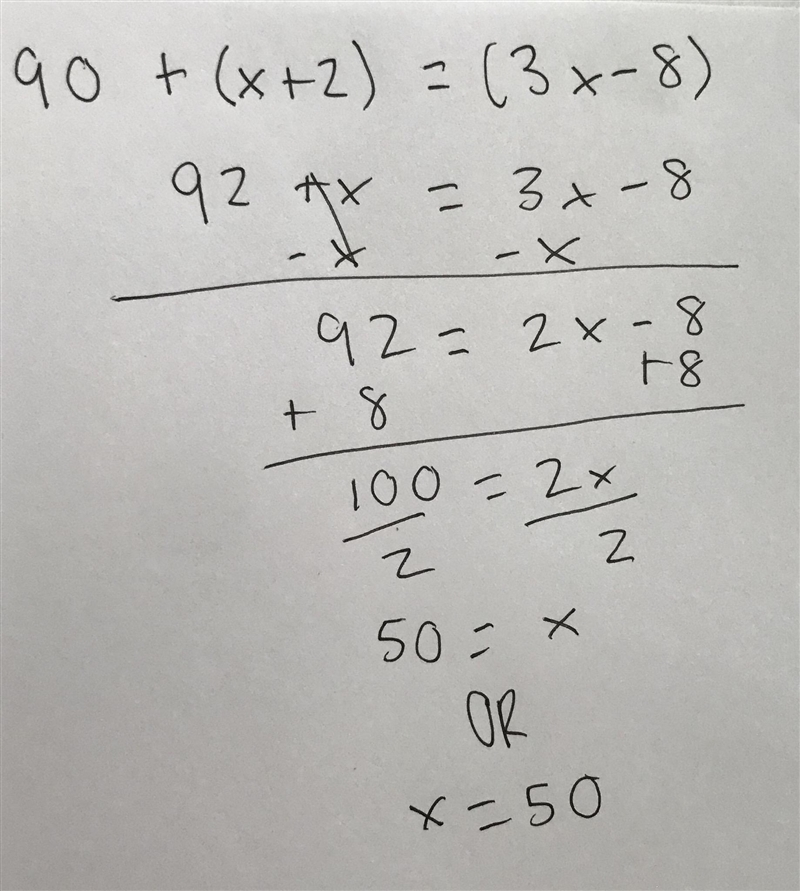 90 + (x+2) = (3x-8)
92 +x = 3x - 8
- x - x
92 = 2x - 8
+ 8 +8
100 = 2x
2 2
50 = x
OR
x = 50